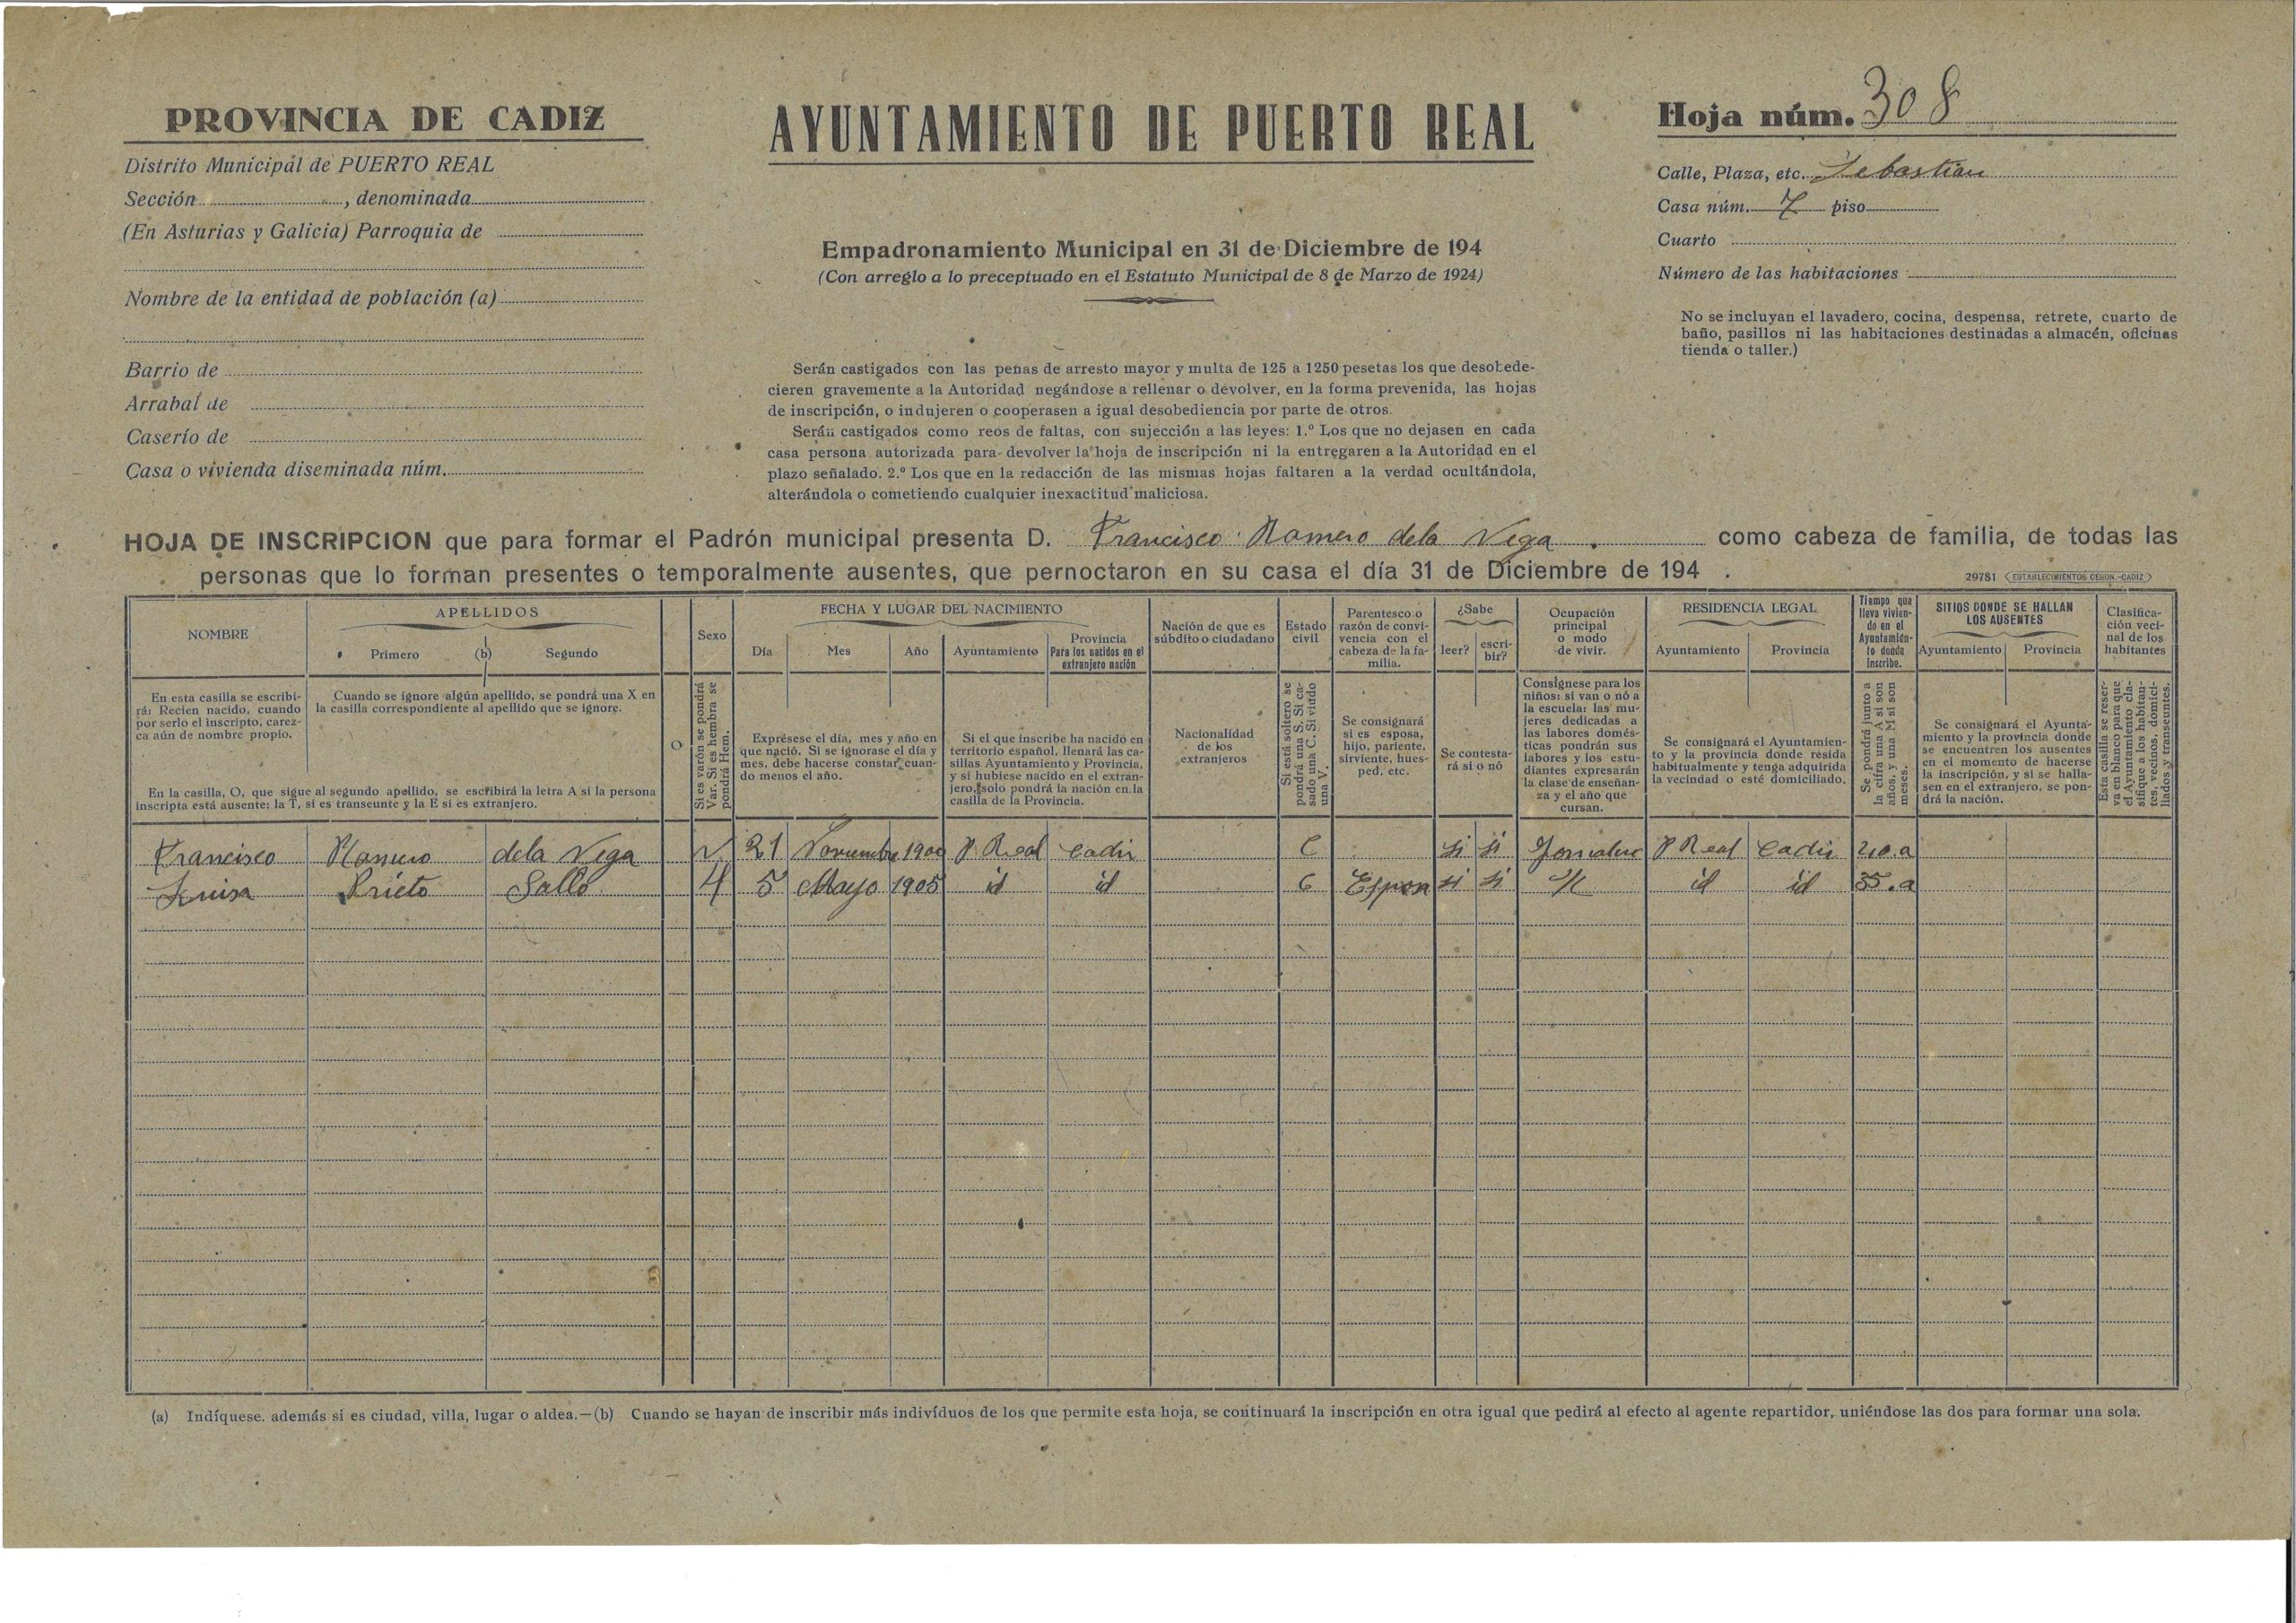 PROVINCIA DE CADIZ
Distrito Municipal de PUERTO REAL
Sección , denominada
(En Asturias y Galicia) Parroquia de
Nombre de la entidad de población (a)
Barrio de
Arrabal de
Caserío de
Casa o vivienda diseminada núm.
AYUNTAMIENTO DE PUERTO REAL
Empadronamiento Municipal en 31 de Diciembre de 194
(Con arreglo a lo preceptuado en el Estatuto Municipal de 8 de Marzo de 1924)
Serán castigados con las penas de arresto mayor y multa de 125 a 1250 pesetas los que desobede-
cieren gravemente a la Autoridad negándose a rellenar o devolver, en la forma prevenida, las hojas
de inscripción, o indujeren o cooperasen a igual desobediencia por parte de otros.
Serán castigados como reos de faltas, con sujección a las leyes: 1.º Los que no dejasen en cada
casa persona autorizada para devolver la hoja de inscripción ni la entregaren a la Autoridad en el
plazo señalado. 2.º Los que en la redacción de las mismas hojas faltaren a la verdad ocultándola,
alterándola o cometiendo cualquier inexactitud maliciosa.
Hoja núm. 308
Calle, Plaza, etc. Sebastian
Casa núm. 7 piso
Cuarto
Número de las habitaciones
No se incluyan el lavadero, cocina, despensa, retrete, cuarto de
baño, pasillos ni las habitaciones destinadas a almacén, oficinas
tienda o taller.)
HOJA DE INSCRIPCION que para formar el Padrón municipal presenta D. Francisco Romero dela Vega como cabeza de familia, de todas las
personas que lo forman presentes o temporalmente ausentes, que pernoctaron en su casa el día 31 de Diciembre de 194 .
29781 (ESTABLECIMIENTOS CERON.-CADIZ)
NOMBRE
APELLIDOS
Primero (b) Segundo
Sexo
FECHA Y LUGAR DEL NACIMIENTO
Día Mes Año Ayuntamiento
Provincia
Para los nacidos en el
extranjero nación
Nación de que es
súbdito o ciudadano
Estado
civil
Parentesco o
razón de convi-
vencia con el
cabeza de la fa-
milia.
¿Sabe
leer? escri-
bir?
Ocupación
principal
o modo
de vivir.
RESIDENCIA LEGAL
Ayuntamiento Provincia
Tiempo que
lleva vivien-
do en el
Ayuntamien-
to donde
inscribe.
SITIOS DONDE SE HALLAN
LOS AUSENTES
Ayuntamiento Provincia
Clasifica-
ción veci-
nal de los
habitantes
En esta casilla se escribi-
rá: Recien nacido, cuando
por serlo el inscripto, carez-
ca aún de nombre propio.
Cuando se ignore algún apellido, se pondrá una X en
la casilla correspondiente al apellido que se ignore.
En la casilla, O, que sigue al segundo apellido, se escribirá la letra A si la persona
inscripta está ausente; la T, si es transeunte y la E si es extranjero.
O
Si es varón se pondrá
Var. Si es hembra se
pondrá Hem.
Exprésese el día, mes y año en
que nació. Si se ignorase el día y
mes, debe hacerse constar cuan-
do menos el año.
Si el que inscribe ha nacido en
territorio español, llenará las ca-
sillas Ayuntamiento y Provincia,
y si hubiese nacido en el extran-
jero, solo pondrá la nación en la
casilla de la Provincia.
Nacionalidad
de los
extranjeros
Si está soltero se
pondrá una S. Si ca-
sado una C. Si viudo
una V.
Se consignará
si es esposa,
hijo, pariente,
sirviente, hues-
ped, etc.
Se contesta-
rá si o nó
Consígnese para los
niños: si van o nó a
la escuela: las mu-
jeres dedicadas a
las labores domés-
ticas pondrán sus
labores y los estu-
diantes expresarán
la clase de enseñan-
za y el año que
cursan.
Se consignará el Ayuntamien-
to y la provincia donde resida
habitualmente y tenga adquirida
la vecindad o esté domiciliado.
Se pondrá junto a
la cifra una A si son
años, y una M si son
meses.
Se consignará el Ayunta-
miento y la provincia donde
se encuentren los ausentes
en el momento de hacerse
la inscripción, y si se halla-
sen en el extranjero, se pon-
drá la nación.
Esta casilla se reser-
va en blanco para que
el Ayuntamiento cla-
sifique a los habitan-
tes, vecinos, domici-
liados y transeuntes.
Francisco Romero dela Vega V 21 Noviembre 1900 P. Real Cadiz C si si P Real Cadiz 40.a
Luisa Prieto Gallo H 5 Mayo 1905 id id C Esposa si si id id 35.a
(a) Indíquese. además si es ciudad, villa, lugar o aldea.—(b) Cuando se hayan de inscribir más indivíduos de los que permite esta hoja, se continuará la inscripción en otra igual que pedirá al efecto al agente repartidor, uniéndose las dos para formar una sola.